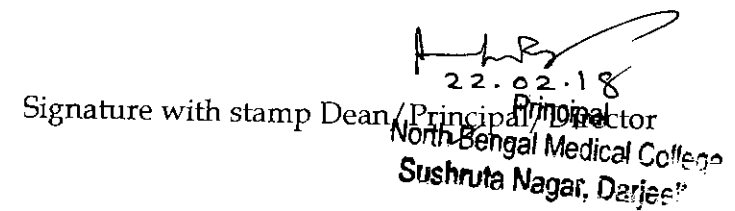 22.02.18
Signature with stamp Dean/Principal/Director
Principal
North Bengal Medical College
Sushruta Nagar,